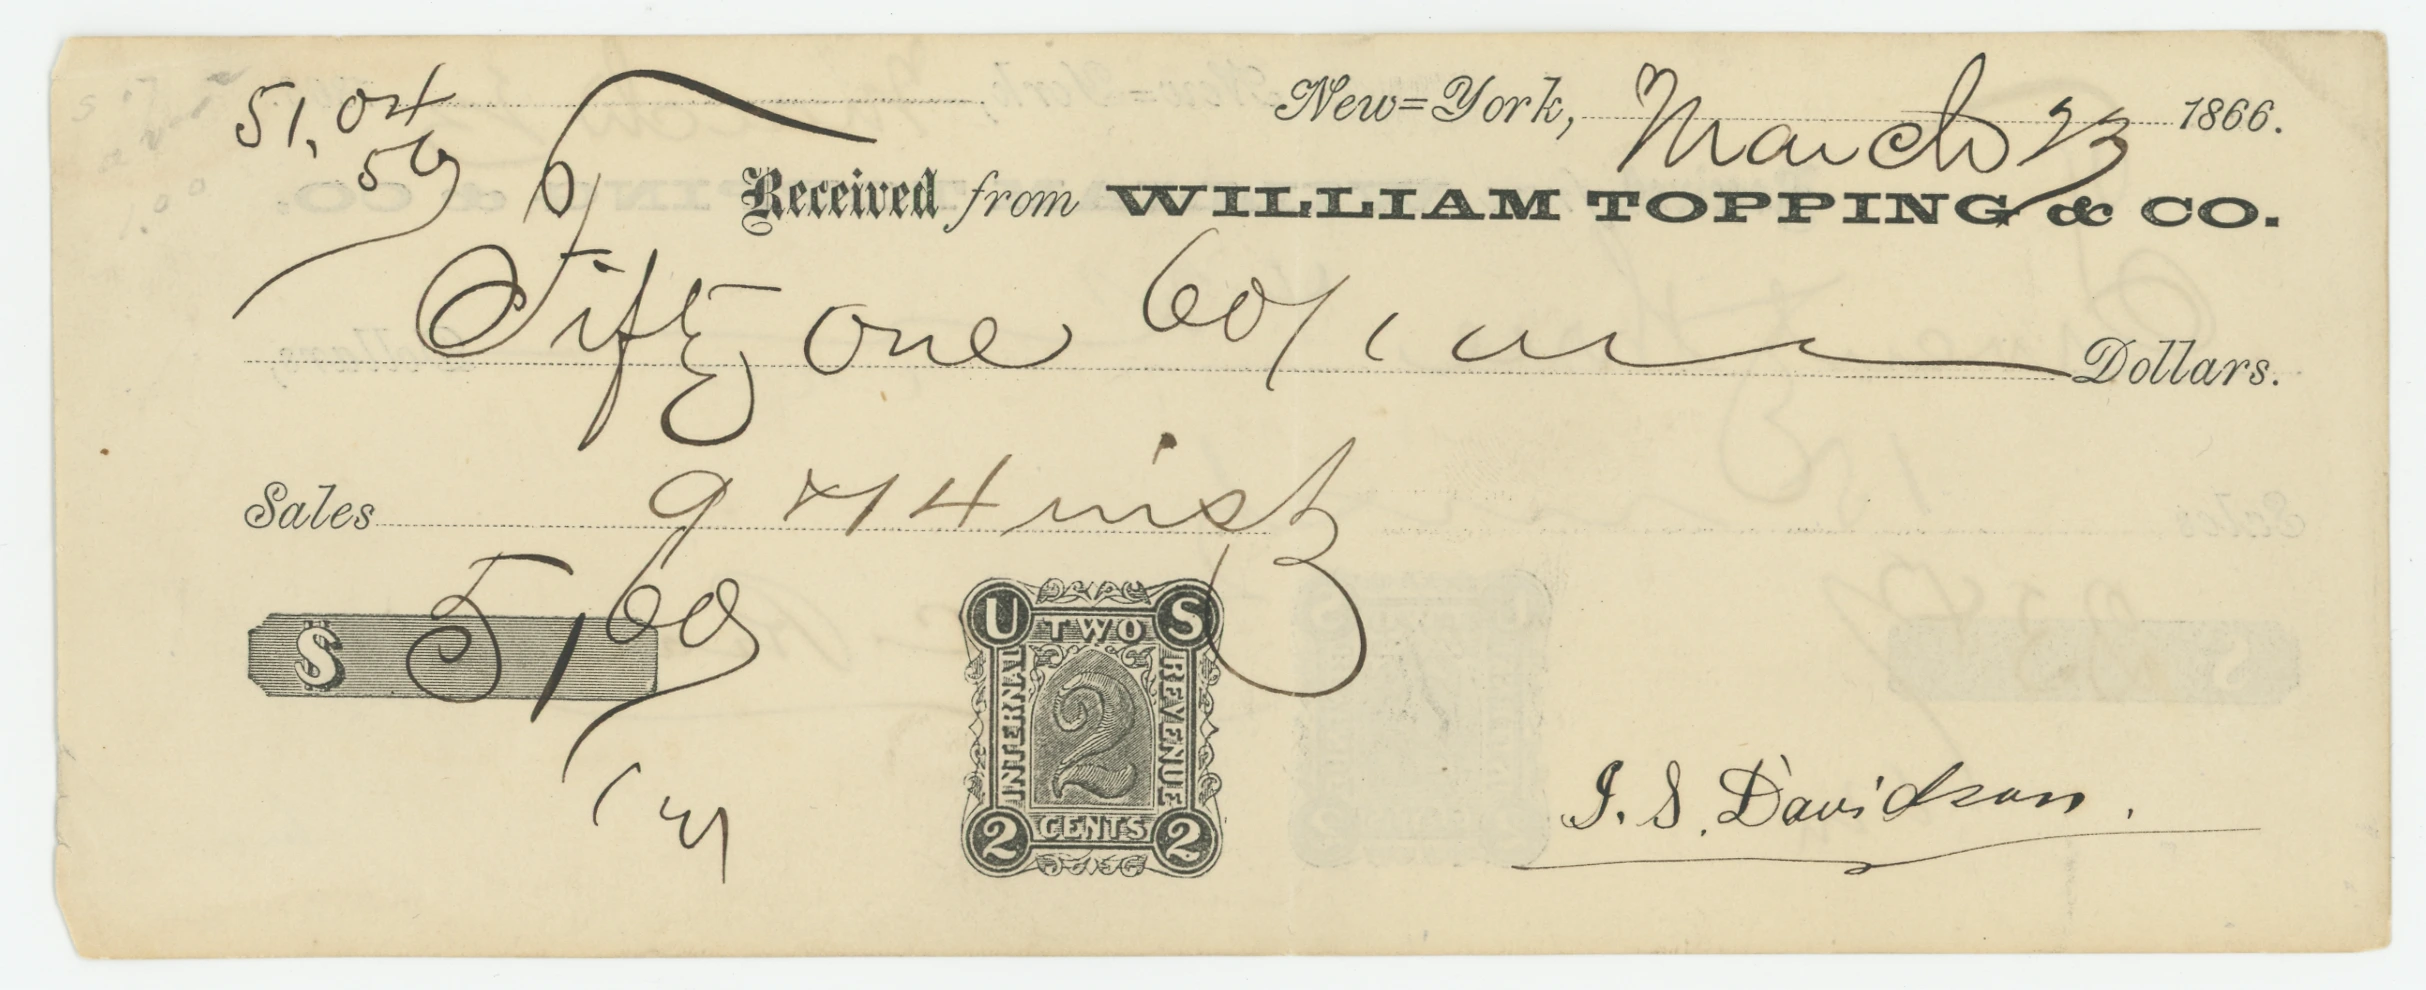 51,04
56
New=York, March 23 1866.
Received from WILLIAM TOPPING & CO.
Fifty one 60/ Dollars.
Sales 9 14 inst
$ 51 60
U S
TWO
INTERNAL REVENUE
2
2 CENTS 2
J. S. Davidson.